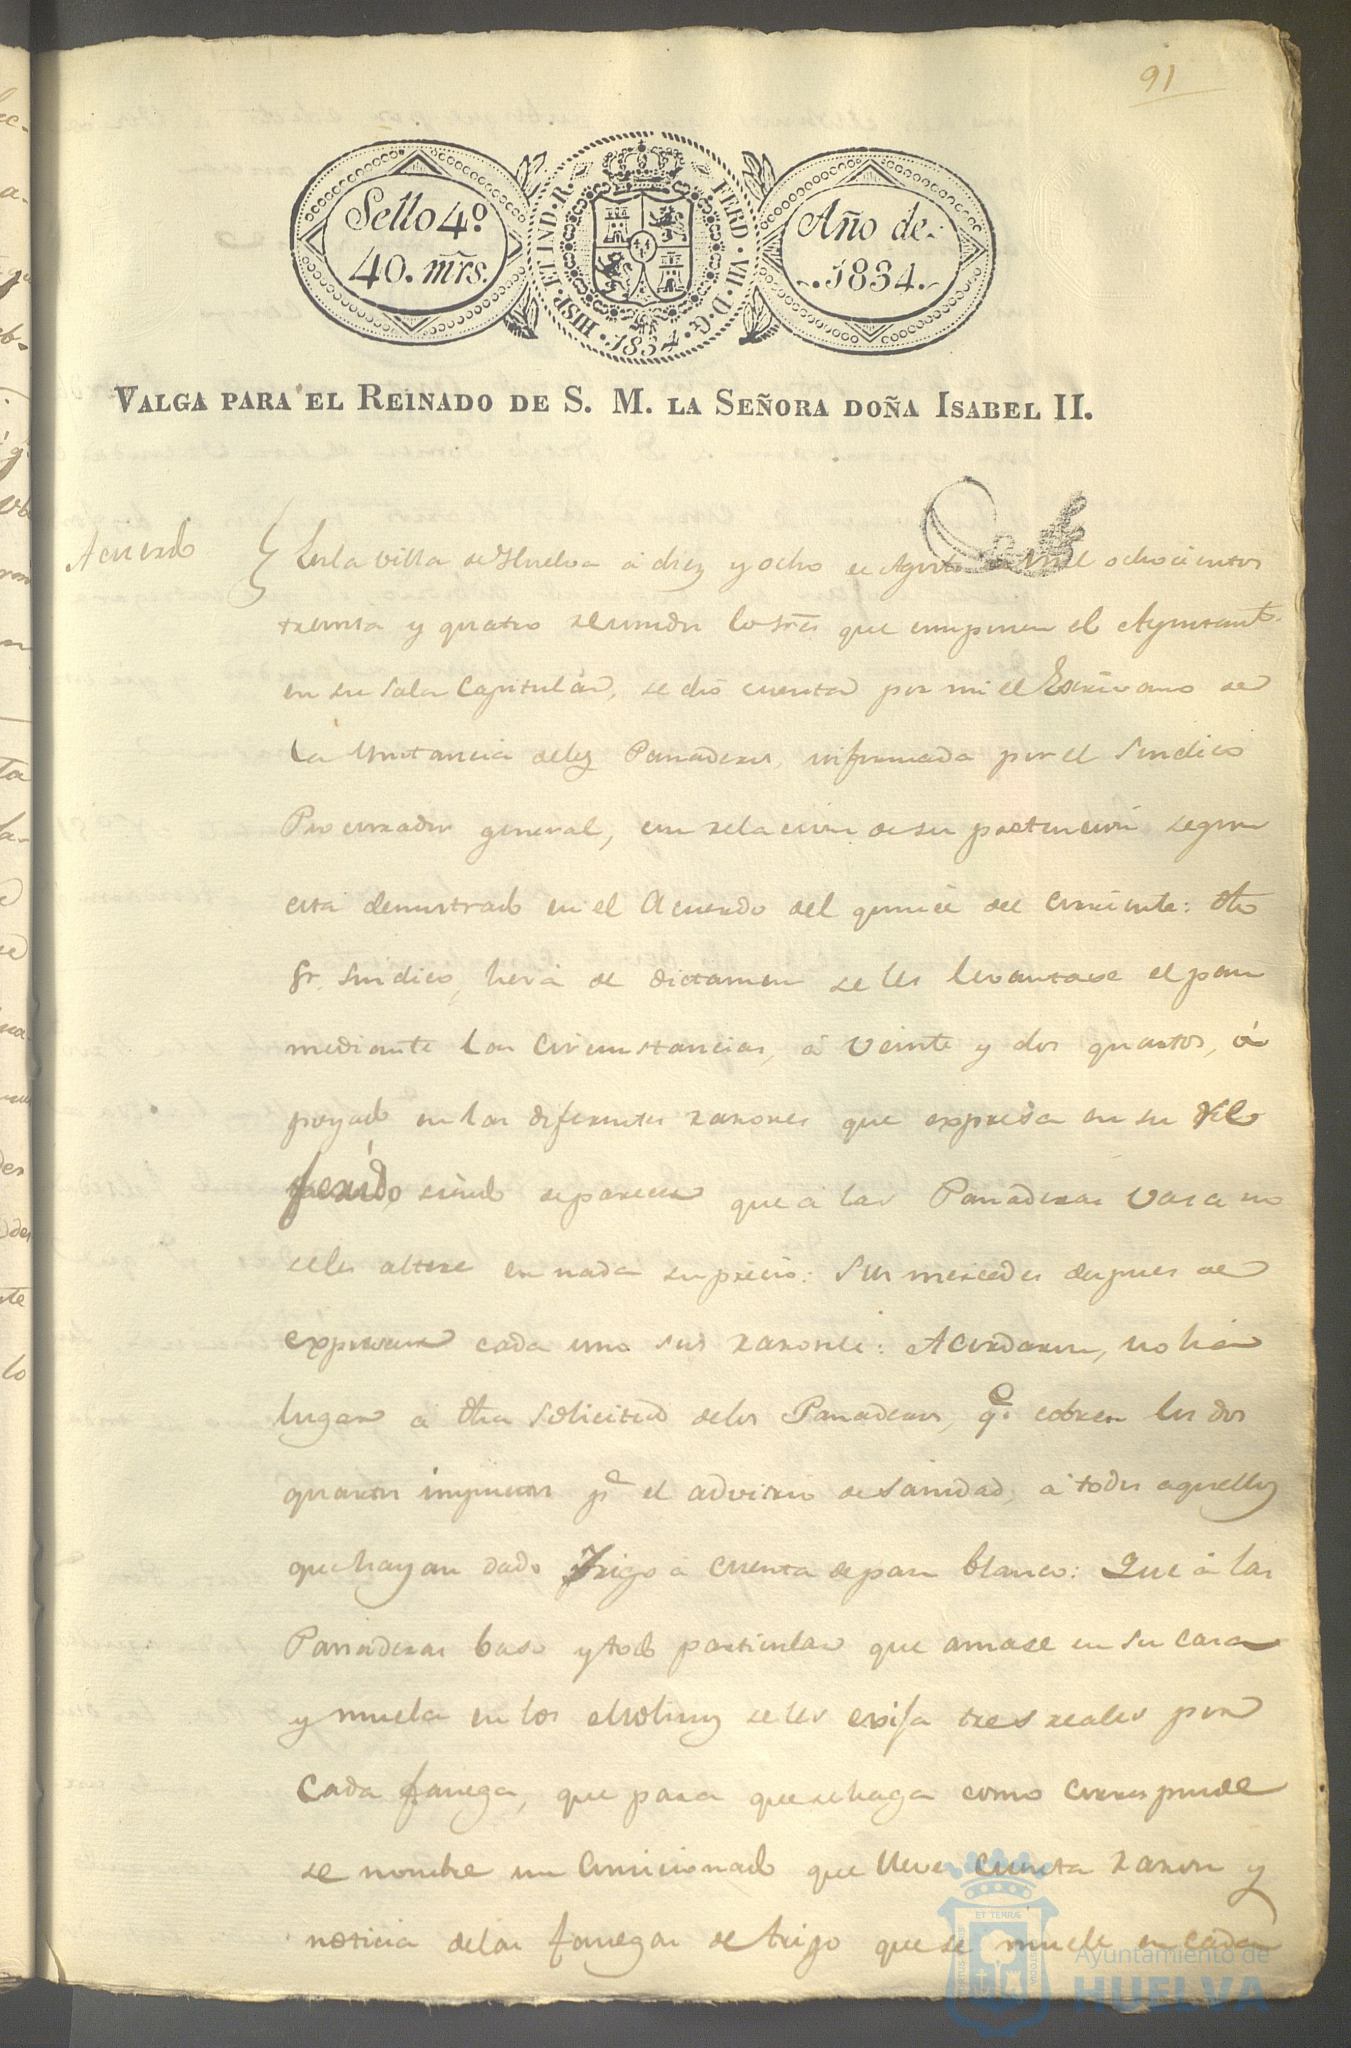 91
Sello 4º
40. mrs.
HISP. ET IND. R.
FERD. VII. D. G.
1834.
Año de
1834.
VALGA PARA EL REINADO DE S. M. LA SEÑORA DOÑA ISABEL II.
Acuerdo
En la villa de Huelva á diez y ocho de Agosto de Mil ochocientos
treinta y quatro reunidos los Sres que componen el Ayuntamto.
en su Sala Capitular, se dió cuenta por mi el Escrivano de
la Ynstancia delos Panaderos, informada por el Sindico
Procurador general, con relacion de su pretencion segun
está demostrado en el Acuerdo del quince del corriente: dho
Sr. Sindico, herá de dictamen se les levantase el pan
mediante las circunstancias, á veinte y dos quartos, á
poyado en las diferentes razones que expresa en su re
ferido, siendo de parecer que á las Panaderas vasa no
seles altere en nada su precio: Sus mercedes despues de
expresar cada uno sus razones: Acordaron, no há
lugar á dha Solicitud delos Panaderos, qe. cobren los dos
quartos impuestos pr. el advitrio de Sanidad, á todos aquellos
que hayan dado Trigo á cuenta de pan blanco: Que á las
Panaderas baso y todo particular que amase en su casa
y muela en los Molinos seles exija tres reales por
Cada fanega, que para que se haga como corresponde
se nombre un Comicionado que lleve cuenta razon y
noticia delas fanegas de trigo que se muele en cada
ET TERRÆ
Ayuntamiento de
HUELVA